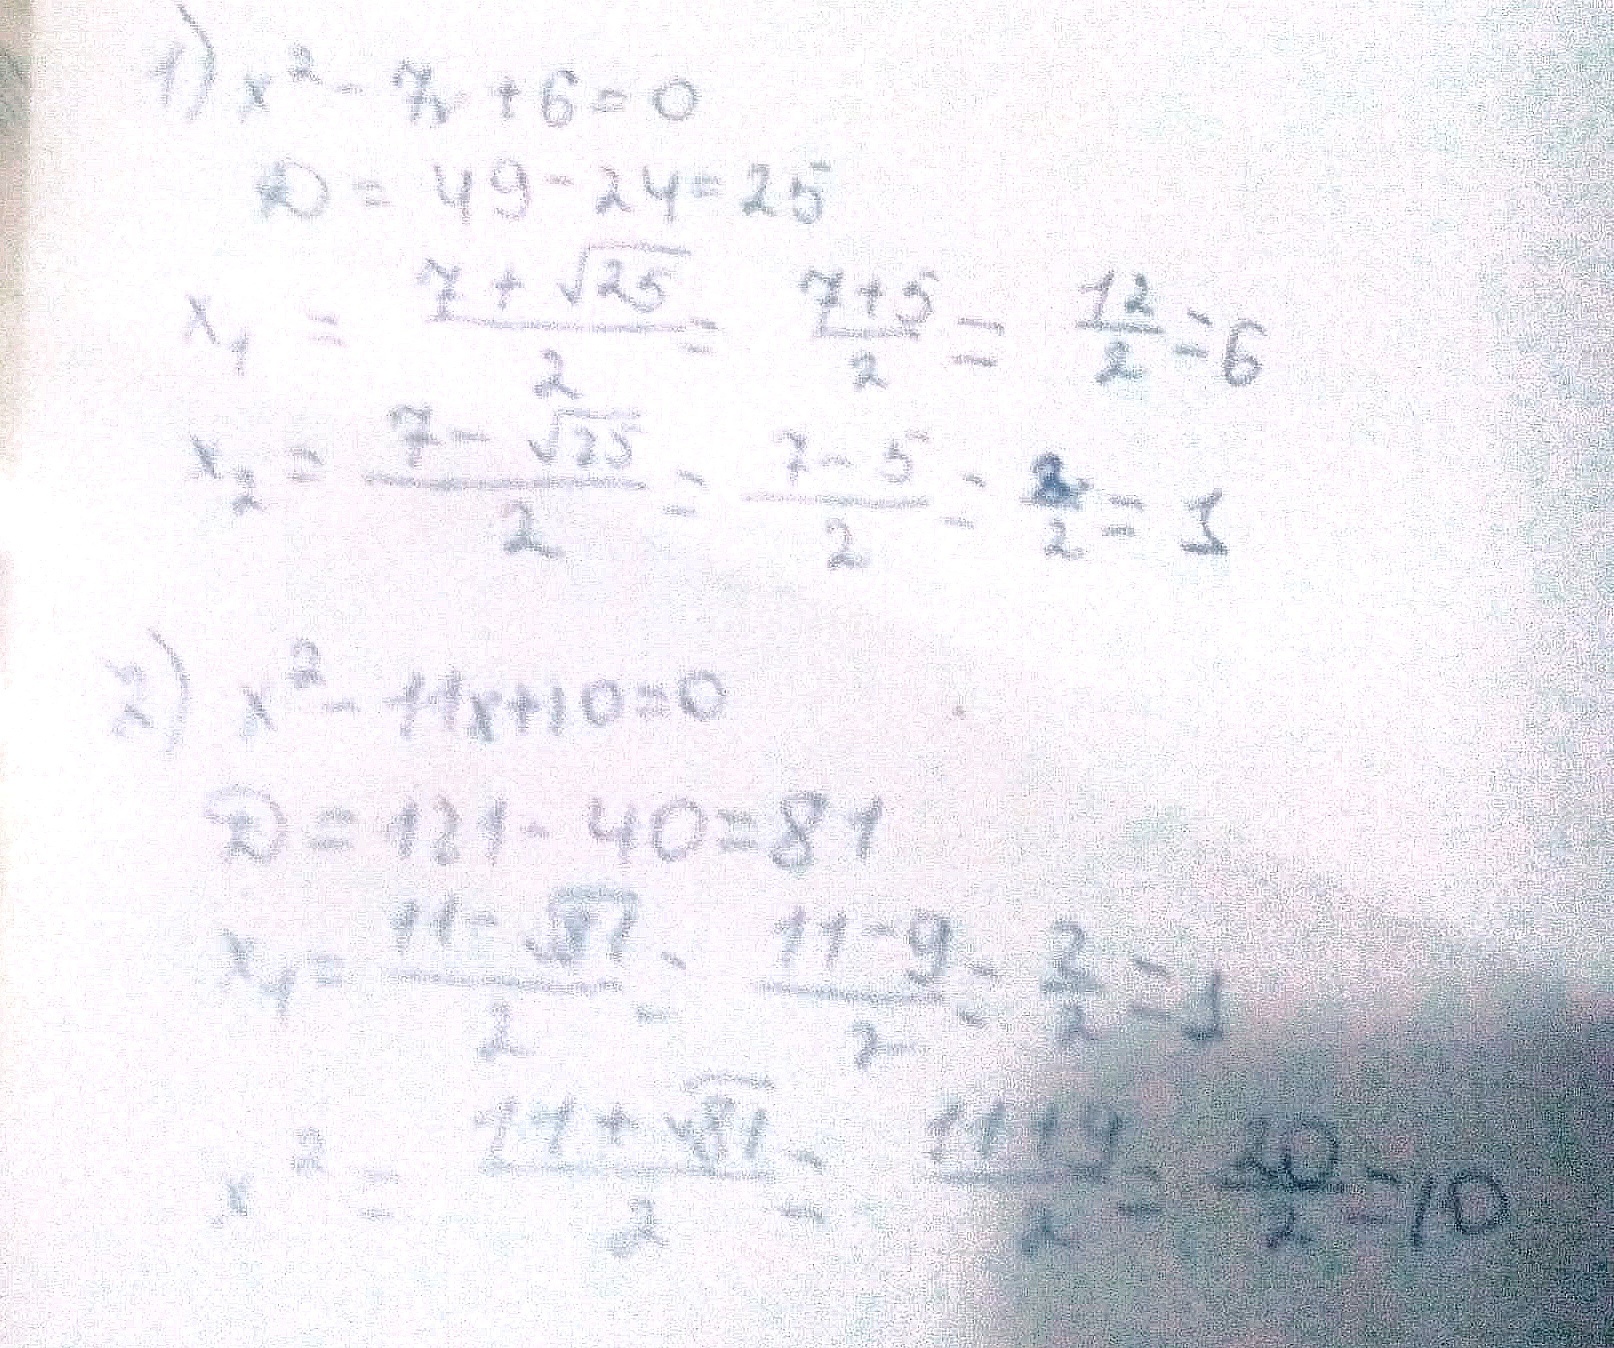 1) x² - 7x + 6 = 0
D = 49 - 24 = 25
x₁ = (7 + √25)/2 = (7+5)/2 = 12/2 = 6
x₂ = (7 - √25)/2 = (7 - 5)/2 = 2/2 = 1
2) x² - 11x + 10 = 0
D = 121 - 40 = 81
x₁ = (11 - √81)/2 = (11 - 9)/2 = 2/2 = 1
x² = (11 + √81)/2 = (11 + 9)/2 = 20/2 = 10